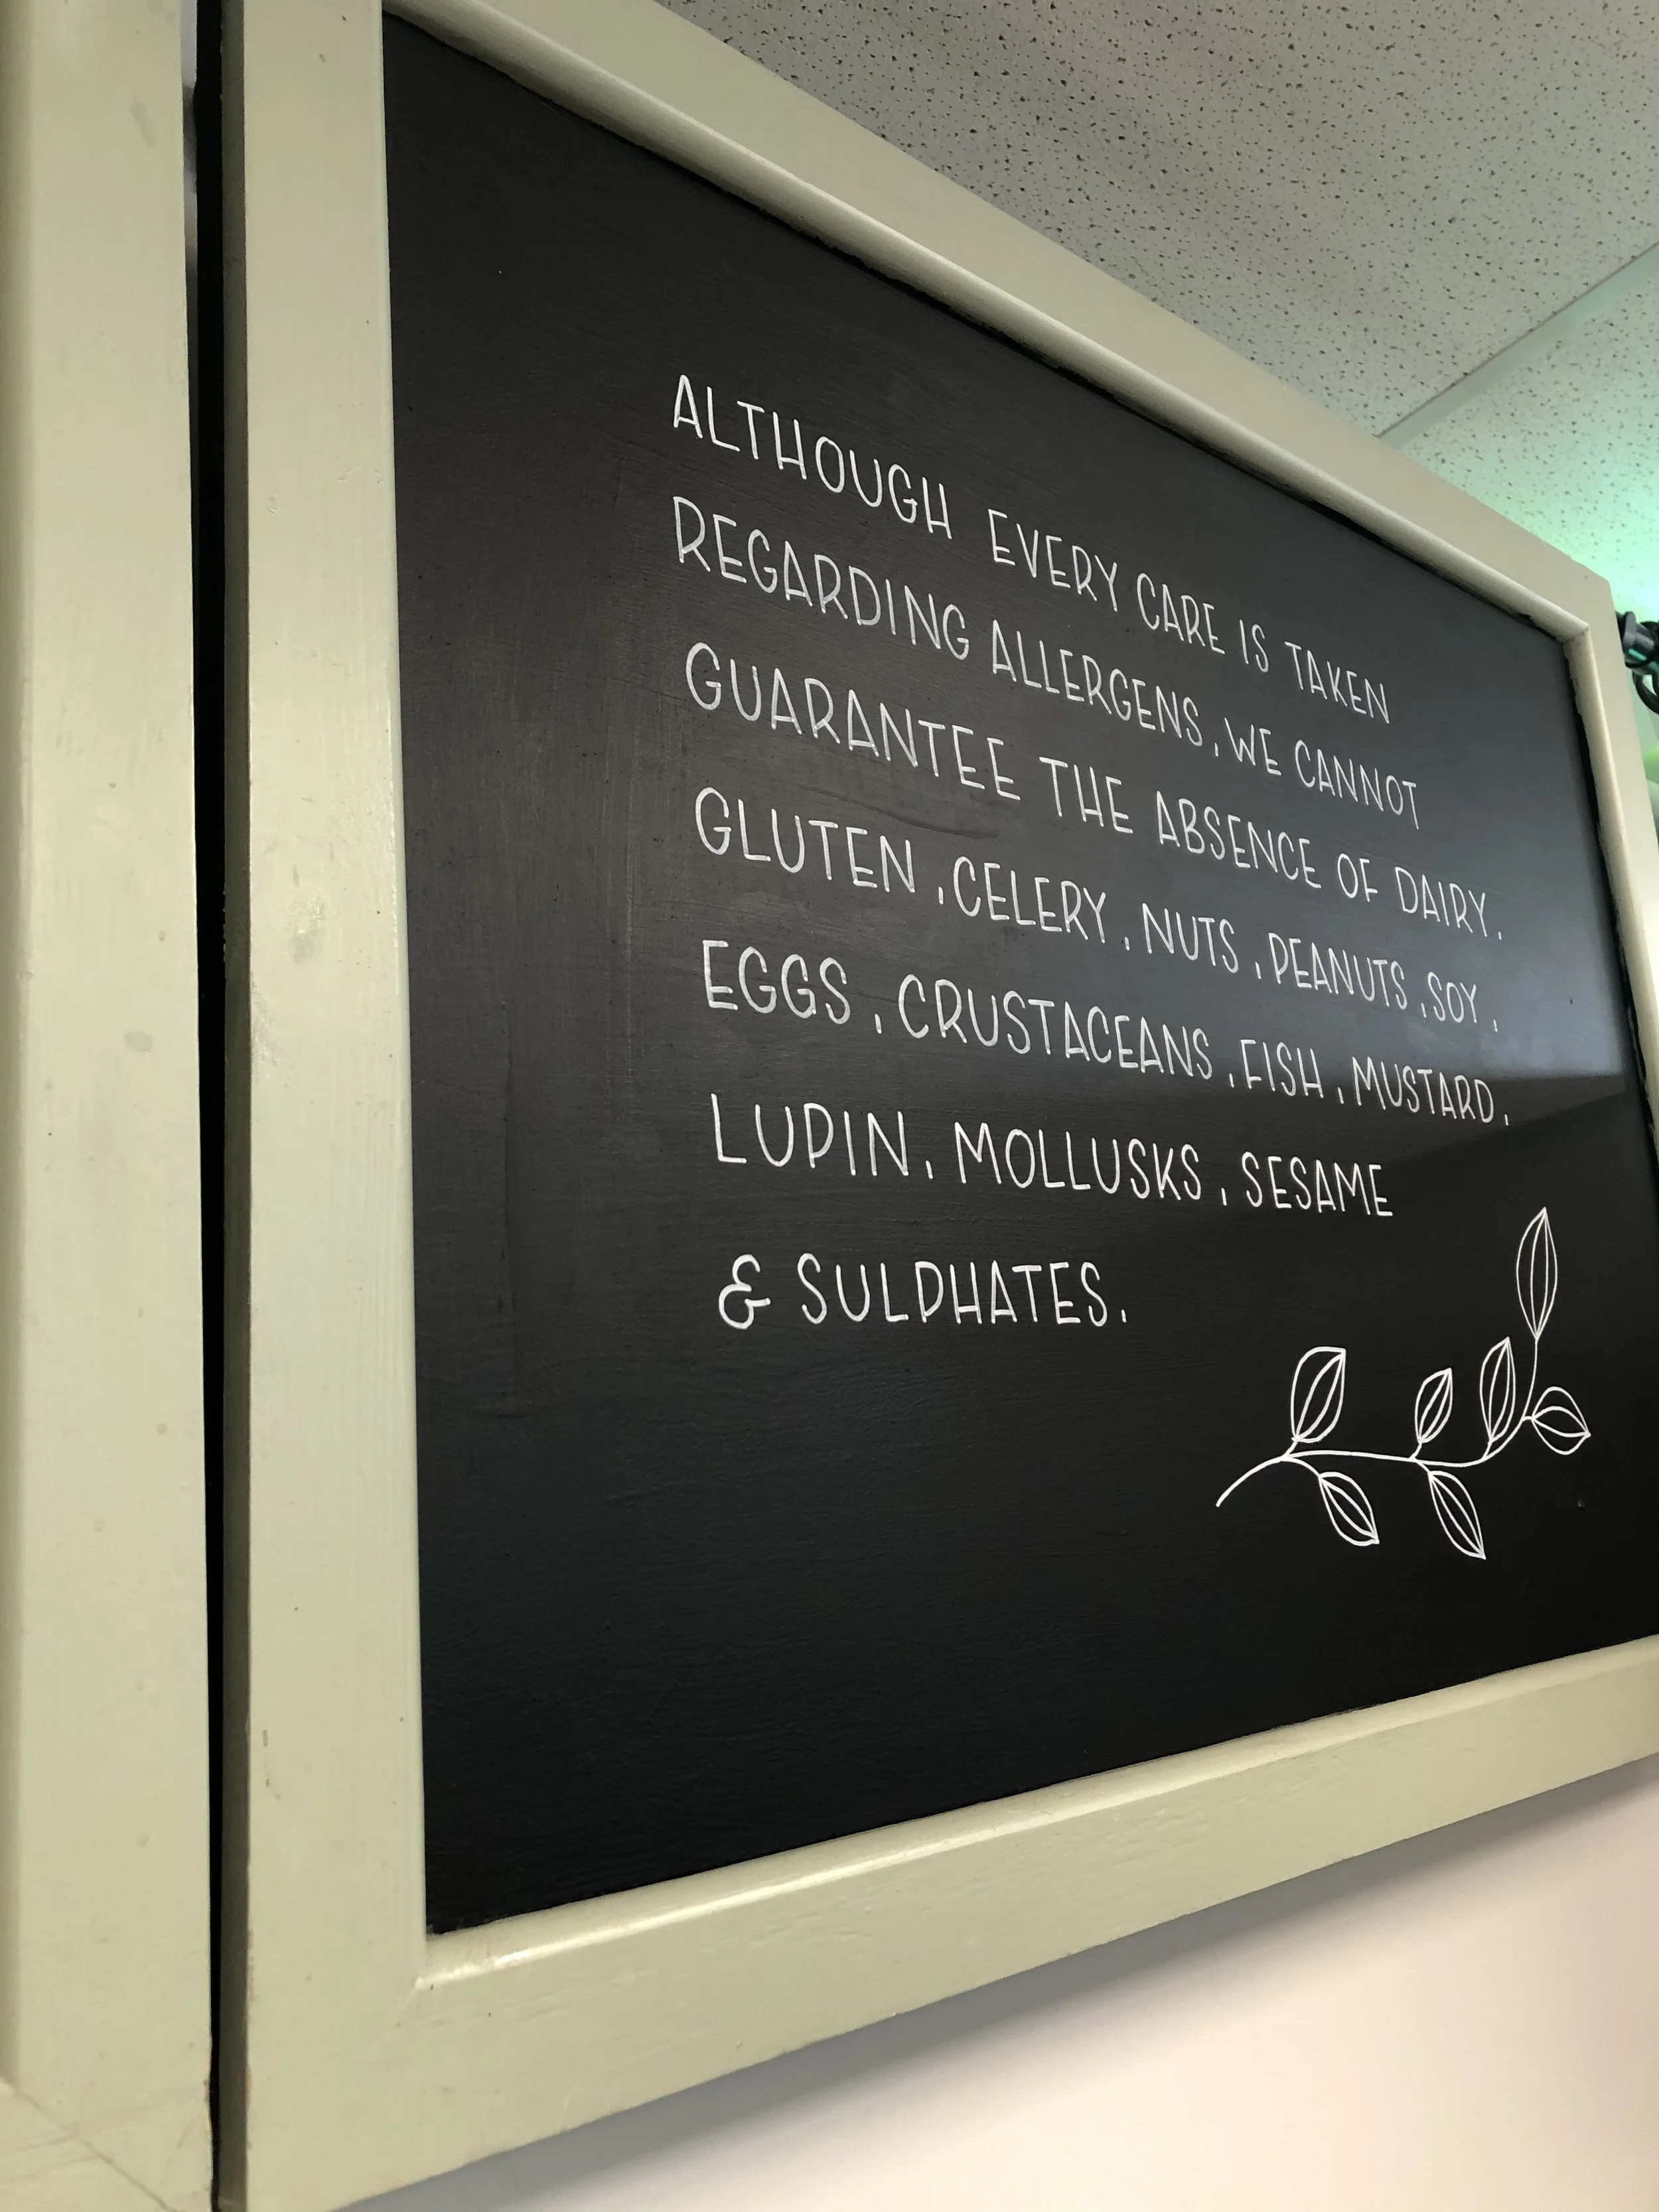 ALTHOUGH EVERY CARE IS TAKEN
REGARDING ALLERGENS, WE CANNOT
GUARANTEE THE ABSENCE OF DAIRY,
GLUTEN, CELERY, NUTS, PEANUTS, SOY,
EGGS, CRUSTACEANS, FISH, MUSTARD,
LUPIN, MOLLUSKS, SESAME
& SULPHATES.